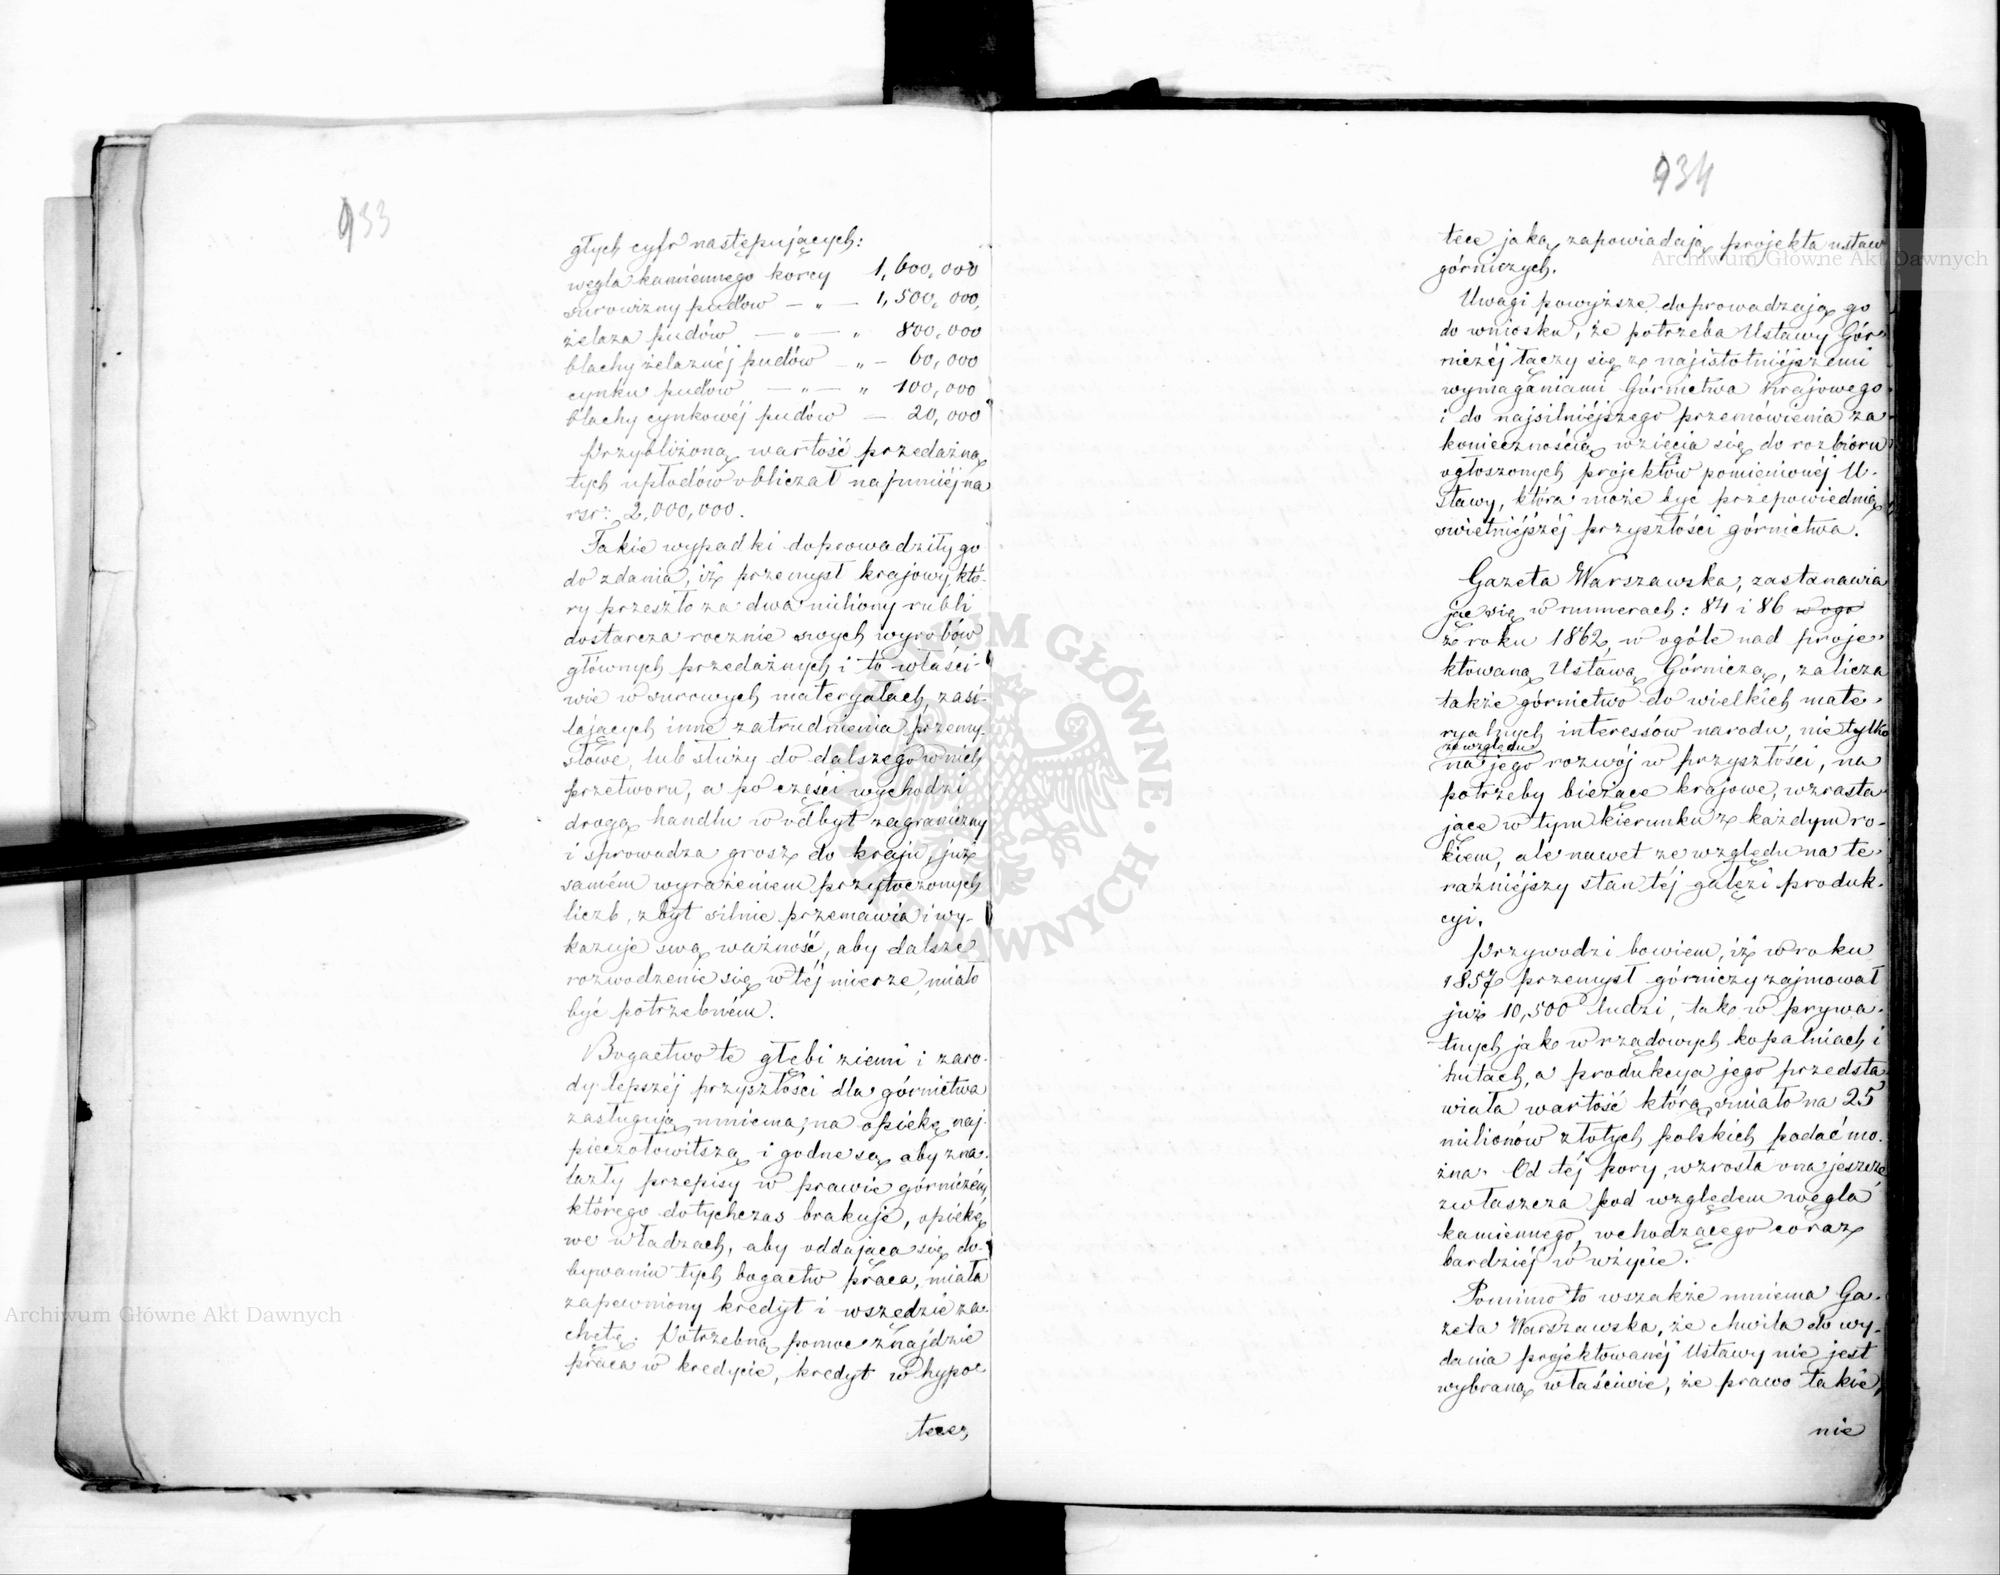 933
głych cyfr następujących:
węgla kamiennego korcy 1,600,000
surowizny pudów — „ — 1,500,000,
żelaza pudów — „ — „ 800,000
blachy żelaznéj pudów — „ — 60,000
cynku pudów — „ — „ 100,000
blachy cynkowéj pudów — 20,000
Przybliżoną wartość przedażną
tych upłodów obliczał najmniéj na
rsr: 2,000,000.
Takie wypadki doprowadziły go
do zdania, iż przemysł krajowy, któ-
ry przeszło za dwa miliony rubli
dostarcza rocznie swych wyrobów
głównych przedażnych i to właści-
wie w surowych materyałach, zasi-
lających inne zatrudnienia przemy-
słowe, lub służy do dalszego w nich
przetworu, a po części wychodzi
drogą handlu w odbyt zagraniczny
i sprowadza grosz do kraju, już
samém wyrażeniem przytoczonych
liczb, zbyt silnie przemawia i wy-
kazuje swą ważność, aby dalsze
rozwodzenie się w téj mierze, miało
być potrzebném.
Bogactwo te głębi ziemi i zaro-
dy lepszéj przyszłości dla górnictwa
zasługują, mniema, na opiekę naj-
pieczołowitszą i godne są aby zna-
lazły przepisy w prawie górniczém,
którego dotychczas brakuje, opiekę
we władzach, aby oddająca się do-
bywaniu tych bogactw praca, miała
zapewniony kredyt i wszędzie za-
chętę. Potrzebną pomoc znajdzie
praca w kredycie, kredyt w hypo-
tece,
934
tece jaką zapowiadają projekta ustaw
górniczych.
Uwagi powyższe doprowadzają go
do wniosku, że potrzeba Ustawy Gór-
niczéj łączy się z najistotniéjszemi
wymaganiami Górnictwa Krajowego
i do najsilniéjszego przemówienia za
koniecznością wzięcia się do rozbioru
ogłoszonych projektów pomienionéj U-
stawy, która może być przepowiednią
świetniéjszéj przyszłości górnictwa.
Gazeta Warszawska, zastanawia
jąc się w numerach: 84 i 86 w ogó
z roku 1862, w ogóle nad proje-
ktowaną Ustawą Górniczą, zalicza
także górnictwo do wielkich mate-
ryalnych interessów narodu, nie tylko
ze względu
na jego rozwój w przyszłości, na
potrzeby bieżące krajowe, wzrasta-
jące w tym kierunku z każdym ro-
kiem, ale nawet ze względu na te-
raźniéjszy stan téj gałęzi produk-
cyi.
Przywodzi bowiem, iż w roku
1857 przemysł górniczy zajmował
już 10,500 ludzi, tak w prywa-
tnych jak w rządowych kopalniach i
hutach, a produkcya jego przedsta
wiała wartość którą śmiało na 25
milionów złotych polskich podać mo-
żna. Od téj pory, wzrosła ona jeszcze
zwłaszcza pod względem węgla
kamiennego, wchodzącego coraz
bardziéj w użycie.
Pomimo to wszakże mniema Ga-
zeta Warszawska, że chwila do wy-
dania projektowanéj Ustawy nie jest
wybraną właściwie, że prawo takie,
nie
Archiwum Główne Akt Dawnych
Archiwum Główne Akt Dawnych
ARCHIWUM GŁÓWNE AKT DAWNYCH